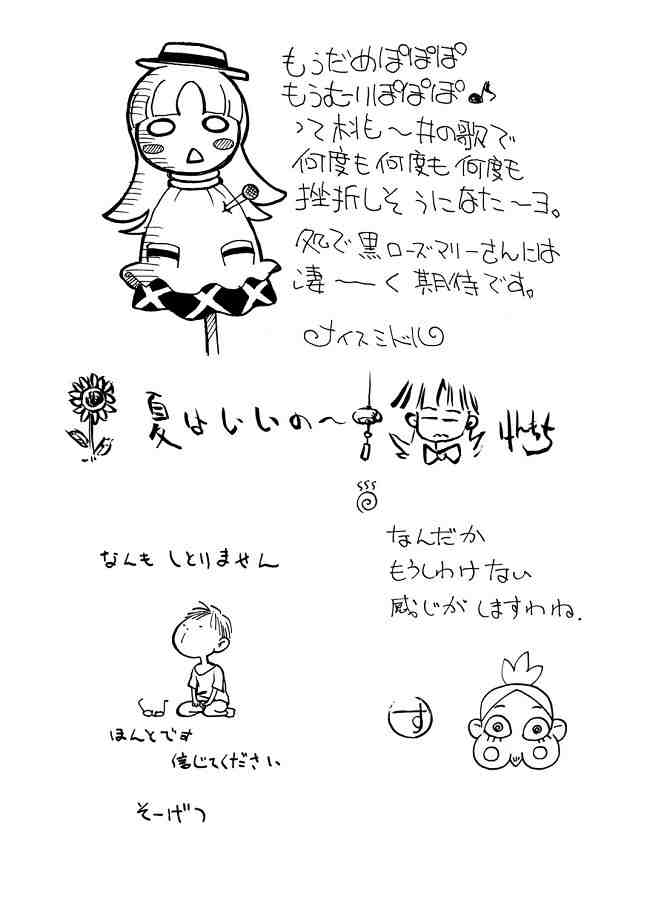 もうだめぽぽぽ
もうむりぽぽぽ♪
って桃も〜井の歌で
何度も何度も何度も
挫折しそうになた〜ヨ。
処で黒ローズマリーさんには
凄――く期待です。
ナイスミドル
夏はいいの〜
けんちち
なんだか
もうしわけない
感じがしますわね.
す
なんも しとりません
ほんとです
信じてください
そーげつ